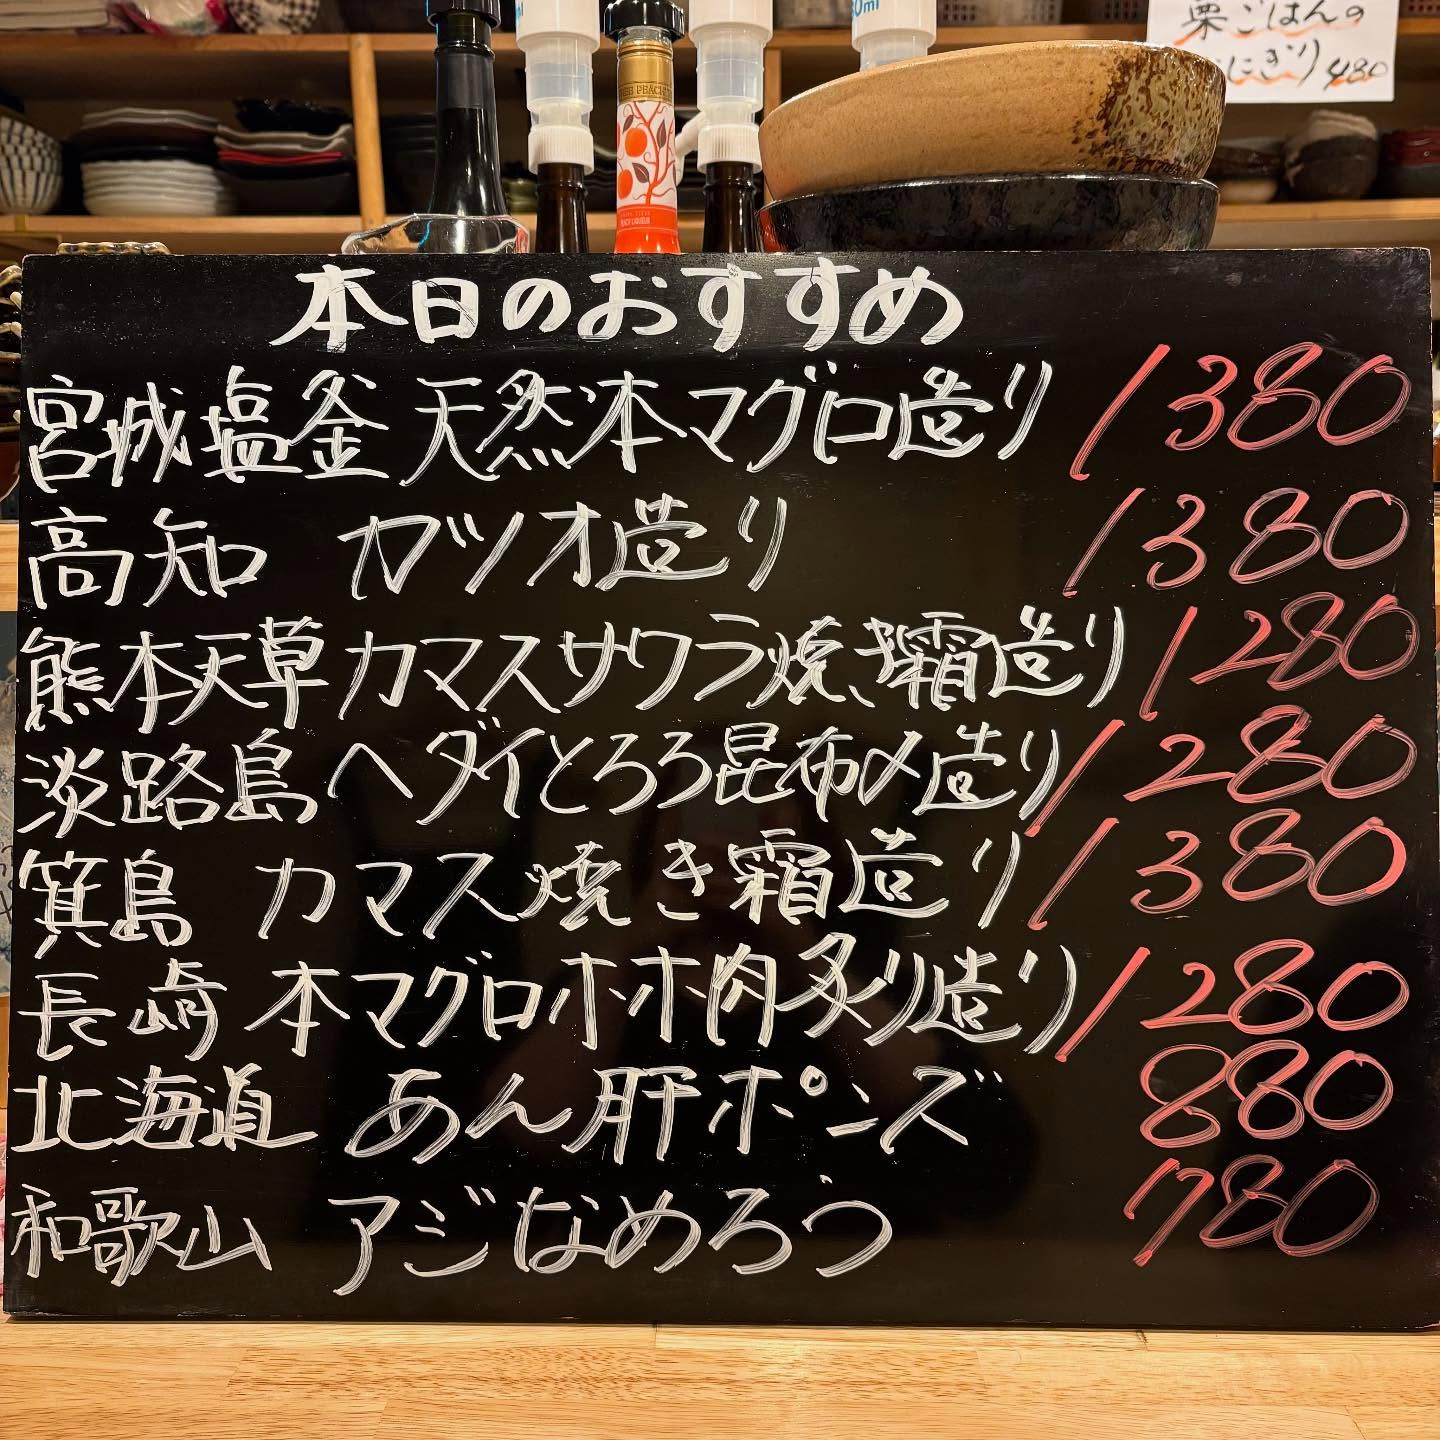 栗ごはんの
にぎり 480
本日のおすすめ
宮城塩釜 天然本マグロ造り 1380
高知 カツオ造り 1380
熊本天草 カマスサワラ焼き霜造り 1280
淡路島 ヘダイとろろ昆布〆造り 1280
箕島 カマス焼き霜造り 1380
長崎 本マグロホホ肉炙り造り 1280
北海道 あん肝ポンズ 880
和歌山 アジなめろう 780
PEACH LIQUEUR